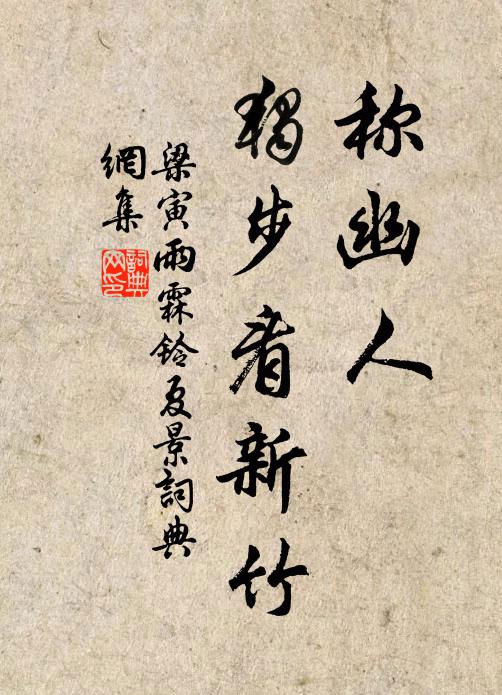 称幽人
独步看新竹
梁寅雨霖铃夏景詞典
網集
詞典
网印